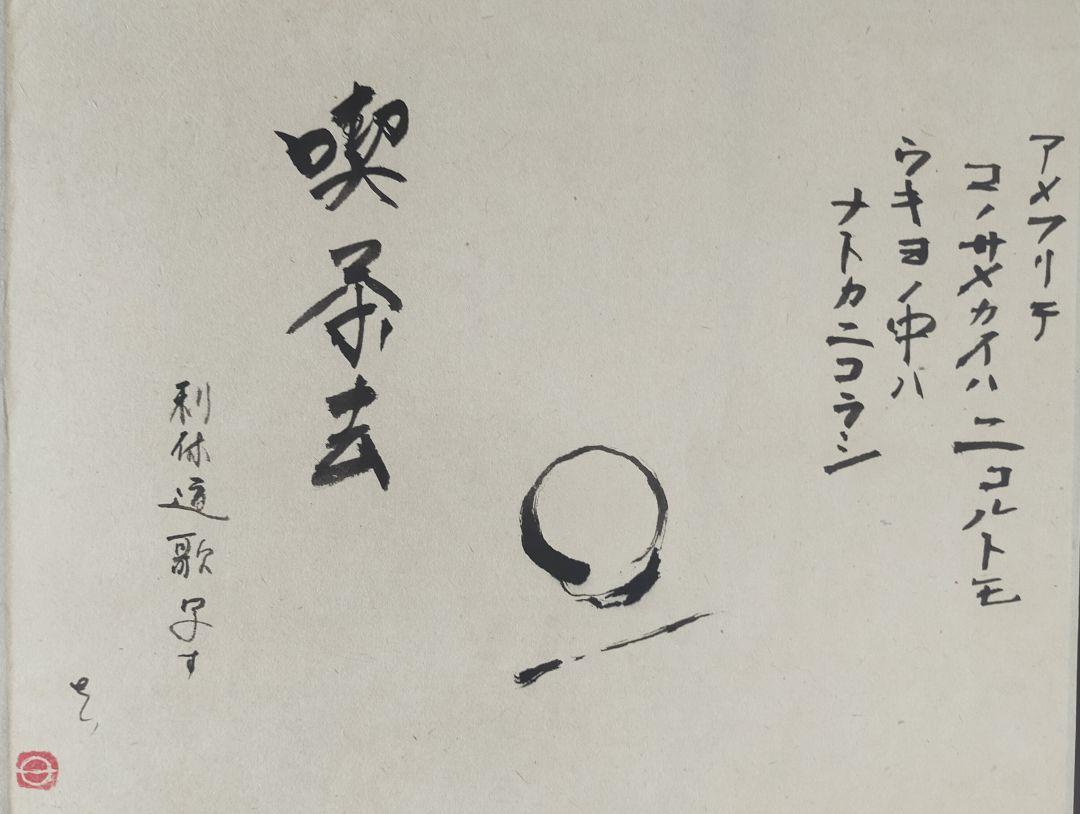 アメフリテ
コノサメカイハニコルトモ
ウキヨノ中ハ
ナトカニコラシ
喫茶去
利休道歌写す